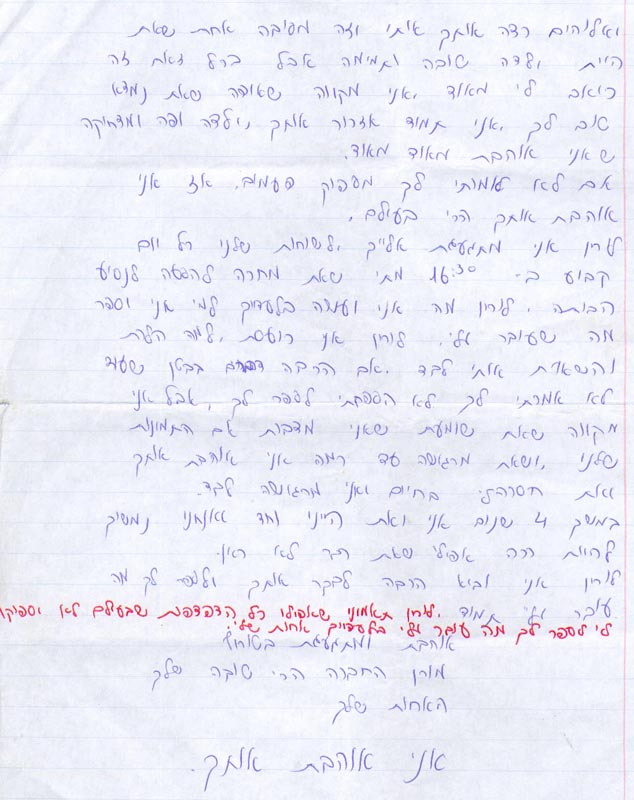 ואלוהים רצה אותך איתי וזה מסיבה אחת שאת
היית ילדה טובה ותמימה אבל בכל זאת זה
כואב לי מאוד, אני מקווה שאיפה שאת נמצא
טוב לך, אני תמיד אזכור אותך, ילדה יפה ומצחיקה
שאני אוהבת מאוד מאוד.
אם לא אמרתי לך מספיק פעמים, אז אני
אוהבת אותך הכי בעולם,
לורין אני מתגעגעת אלייך, לשיחות שלנו כל יום
קבוע ב- 16:30 מתי שאת מחכה להסעה לנסיע
הביתה, לורין מה אני יעשה בלעדייך למי אני יספר
מה שעובר עלי, לורין אני כועסת, למה הלכת
והשארת אותי לבד, יש הרבה דברים בבטן שעוד
לא אמרתי לך לא הספקתי לספר לך, אבל אני
מקווה שאת שומעת שאני מדברת עם התמונות
שלנו, ושאת מרגישה עד כמה אני אוהבת אותך
ואת חסרה לי בחיים ואני מרגישה לבד.
במשך 4 שנים אני ואת היינו יחד ואנחנו נמשיך
להיות ככה אפילו שאת כבר לא כאן.
לורין אני יבוא הרבה לבקר אותך ולספר לך מה
עובר עלי תמיד, לורין תאמיני שאפילו כל הדפדפות שבעולם לא יספיקו
לי לספר לך מה עובר עלי בלעדייך אחות שלי.
אוהבת ומתגעגעת בטירוף
מורן החברה הכי טובה שלך
האחות שלך
אני אוהבת אותך.